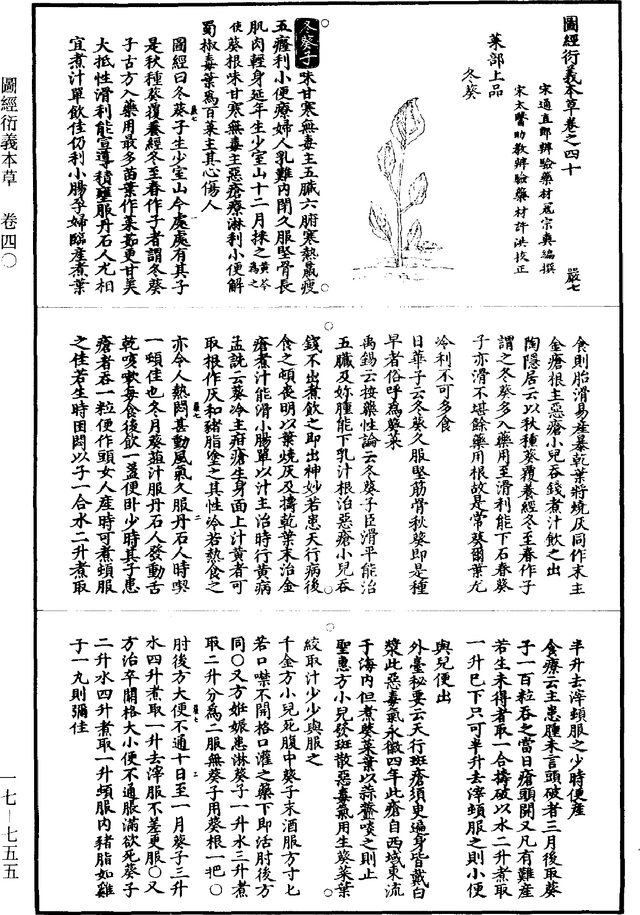 圖經衍義本草卷之四十
嚴七
宋通直郎辨驗藥材寇宗奭編撰
宋太醫助教辨驗藥材許洪校正
菜部上品
冬葵
冬葵子味甘寒無毒主五臟六腑寒熱羸瘦
五癃利小便療婦人乳難內閉久服堅骨長
肌肉輕身延年生少室山十二月採之黃芩為之
使葵根味甘寒無毒主惡瘡療淋利小便解
蜀椒毒葉為百菜主其心傷人
圖經曰冬葵子生少室山今處處有其子
是秋種葵覆養經冬至春作子者謂冬葵
子古方入藥用最多苗葉作菜茹更甘美
大抵性滑利能宣導積壅服丹石人尤相
宜煮汁單飲佳仍利小腸孕婦臨產煮葉
食則胎滑易產暴乾葉將燒灰同作末主
金瘡根主惡瘡小兒吞錢煮汁飲之出
陶隱居云以秋種葵覆養經冬至春作子
謂之冬葵多入藥用至滑利能下石春葵
子亦滑不堪餘藥用根故是常葵爾葉尤
冷利不可多食
日華子云冬葵久服堅筋骨秋葵即是種
早者俗呼為葵菜
禹錫云按藥性論云冬葵子臣滑平能治
五臟及妳腫能下乳汁根治惡瘡小兒吞
錢不出煮飲之即出神妙若患天行病後
食之頓喪明以葉燒灰及擣乾葉末治金
瘡煮汁能滑小腸單以汁主治時行黃病
孟詵云葵冷主疳瘡生身面上汁黃者可
取根作灰和豬脂塗之其性冷若熱食之
亦令人熱悶甚動風氣久服丹石人時喫
一頓佳也冬月葵葅汁服丹石人發動舌
乾咳嗽每食後飲一盞便卧少時其子患
瘡者吞一粒便作頭女人產時可煮頓服
之佳若生時困悶以子一合水二升煮取
半升去滓頓服之少時便產
食療云主患腫未言頭破者三月後取葵
子一百粒吞之當日瘡頭開又凡有難產
若生未得者取一合擣破以水二升煮取
一升已下只可半升去滓頓服之則小便
與兒便出
外臺秘要云天行斑瘡須臾遍身皆戴白
漿此惡毒氣永徽四年此瘡自西域東流
于海內但煮葵菜葉以蒜虀啖之則止
聖惠方小兒發斑散惡毒氣用生葵菜葉
絞取汁少少與服之
千金方小兒死腹中葵子末酒服方寸匕
若口噤不開格口灌之藥下即活肘後方
同○又方妊娠患淋葵子一升水三升煮
取二升分為二服無葵子用葵根一把○
肘後方大便不通十日至一月葵子三升
水四升煮取一升去滓服不差更服○又
方治卒關格大小便不通脹滿欲死葵子
二升水四升煮取一升頓服內豬脂如雞
子一丸則彌佳
圖經衍義本草 卷四〇
一七—七五五